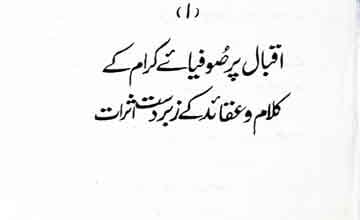 (۱)
اقبال پر صُوفیائے کرام کے
کلام و عقائد کے زبردست اثرات